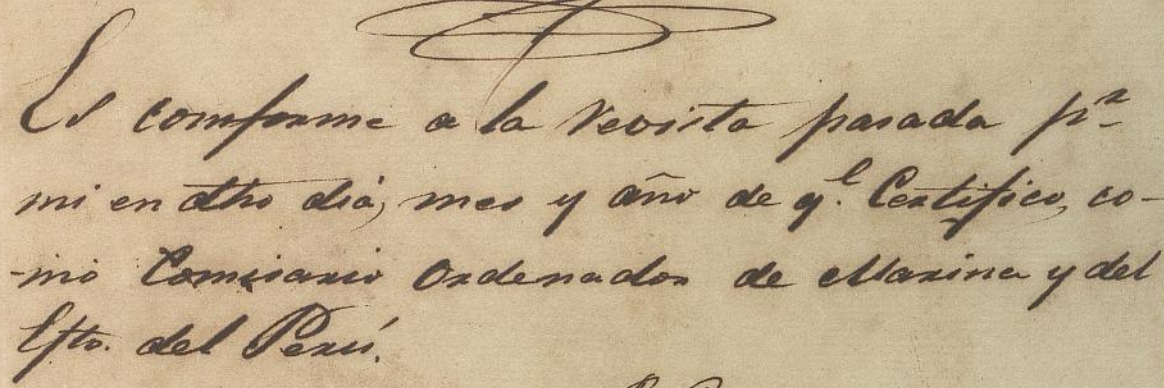 Es comforme a la revista pasada pr
mi en dho dia, mes y año de ql. Certifico, co-
-mo Comisario Ordenador de Marina y del
Efto. del Perú.